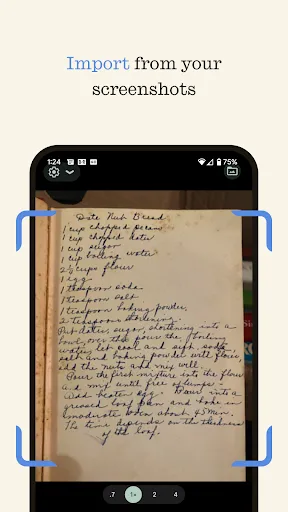 Import from your
screenshots
1:24
75%
Date Nut Bread
1 cup chopped pecans
1 cup chopped dates
1 cup sugar
1 cup boiling water
2½ cups flour
1 egg
1 teaspoon soda
1 teaspoon salt
1 teaspoon baking powder,
2 teaspoons shortening.
Put dates, sugar, shortening into a
bowl, over this pour the boiling
water, let cool and sift, soda,
salt and baking powder with flour,
add the nuts and mix well.
Pour the first mixture into the flour
and mix until free of lumps.
Add beaten egg. Pour into a
greased loaf pan and bake in
moderate oven about 45 min.
The time depends on the thickness
of the loaf.
.7 1x 2 4